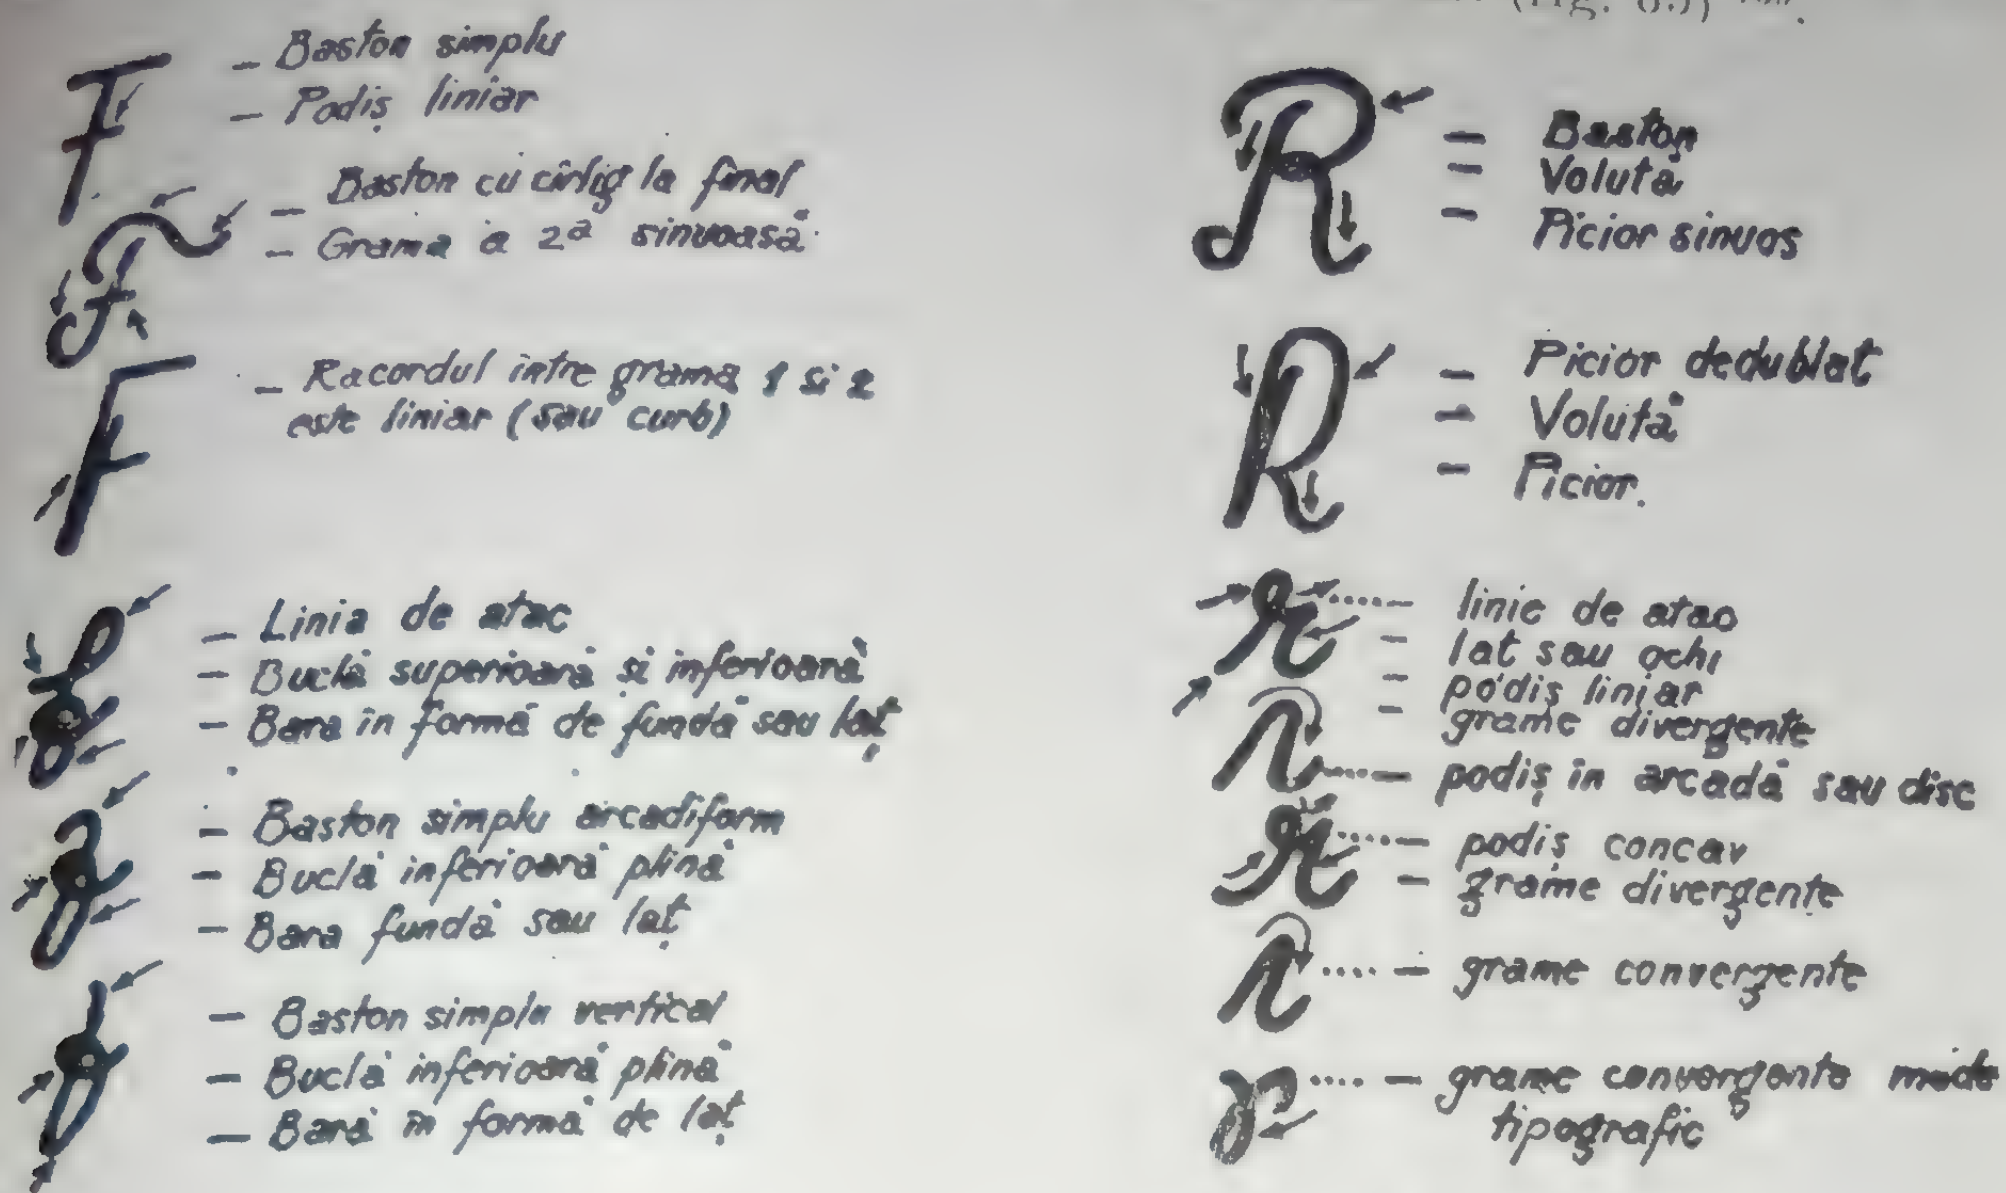 (Fig. 
F
- Baston simplu
- Podiș liniar
F
- Baston cu cîrlig la final
- Grama a 2ª sinuoasă
F
- Racordul între grama 1 si 2
este liniar (sau curb)
f
- Linia de atac
- Buclă superioară si inferioară
- Bara în formă de fundă sau laț
f
- Baston simplu arcadiform
- Buclă inferioară plină
- Bara fundă sau laț
f
- Baston simplu vertical
- Buclă inferioară plină
- Bară în formă de laț
R
- Baston
- Volută
- Picior sinuos
R
- Picior dedublat
- Volută
- Picior.
r
....- linie de atac
- lat sau ochi
- podiș liniar
- grame divergente
r
....- podiș în arcadă sau disc
r
....- podiș concav
- grame divergente
r
....- grame convergente
r
....- grame convergente mode
tipografic